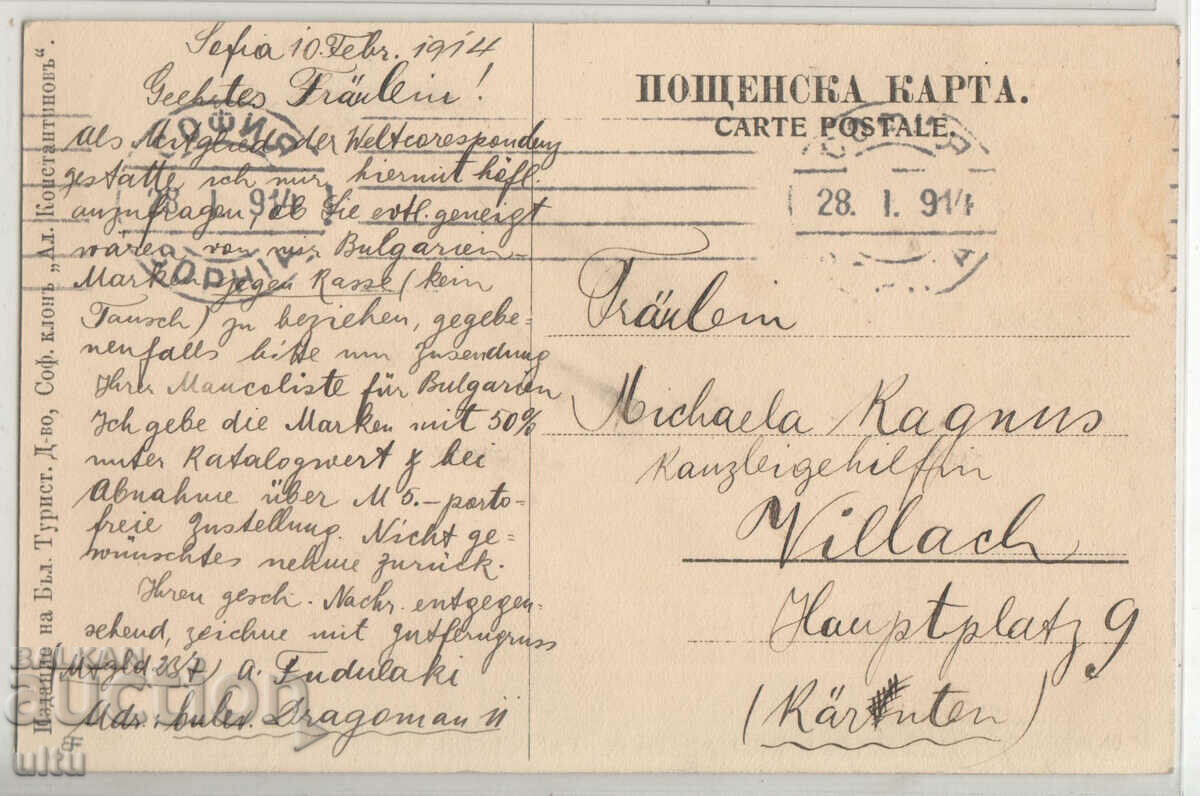 Издание на Бъл. Турист. Д-во, Соф. клонъ „Ал. Константиновъ“.
Sofia 10. Febr. 1914
Geehrtes Fräulein!
Als Mitglied der Weltcorespondenz
gestatte ich mir, hiermit höfl.
anzufragen, ob Sie evtl. geneigt
wären von mir Bulgarien-
Marken gegen Kasse (kein
Tausch) zu beziehen, gegebe=
nenfalls bitte um Zusendung
Ihrer Mancoliste für Bulgarien
Ich gebe die Marken mit 50%
unter Katalogwert & bei
Abnahme über M 5.- porto=
freie Zustellung. Nicht ge=
wünschtes nehme zurück.
Ihren gesch. Nachr. entgegen-
sehend, zeichne mit Gutferngruss
(Mtgld 28/7) A. Fudulaki
Adr.: bulev. Dragoman 11
ПОЩЕНСКА КАРТА.
CARTE POSTALE.
СОФИЯ
28. I. 914
СОФИЯ
28. I. 914
Fräulein
Michaela Ragnus
Kanzleigehilffin
Villach
Hauptplatz 9
(Kärnten)
BALKAN
auction
ultu